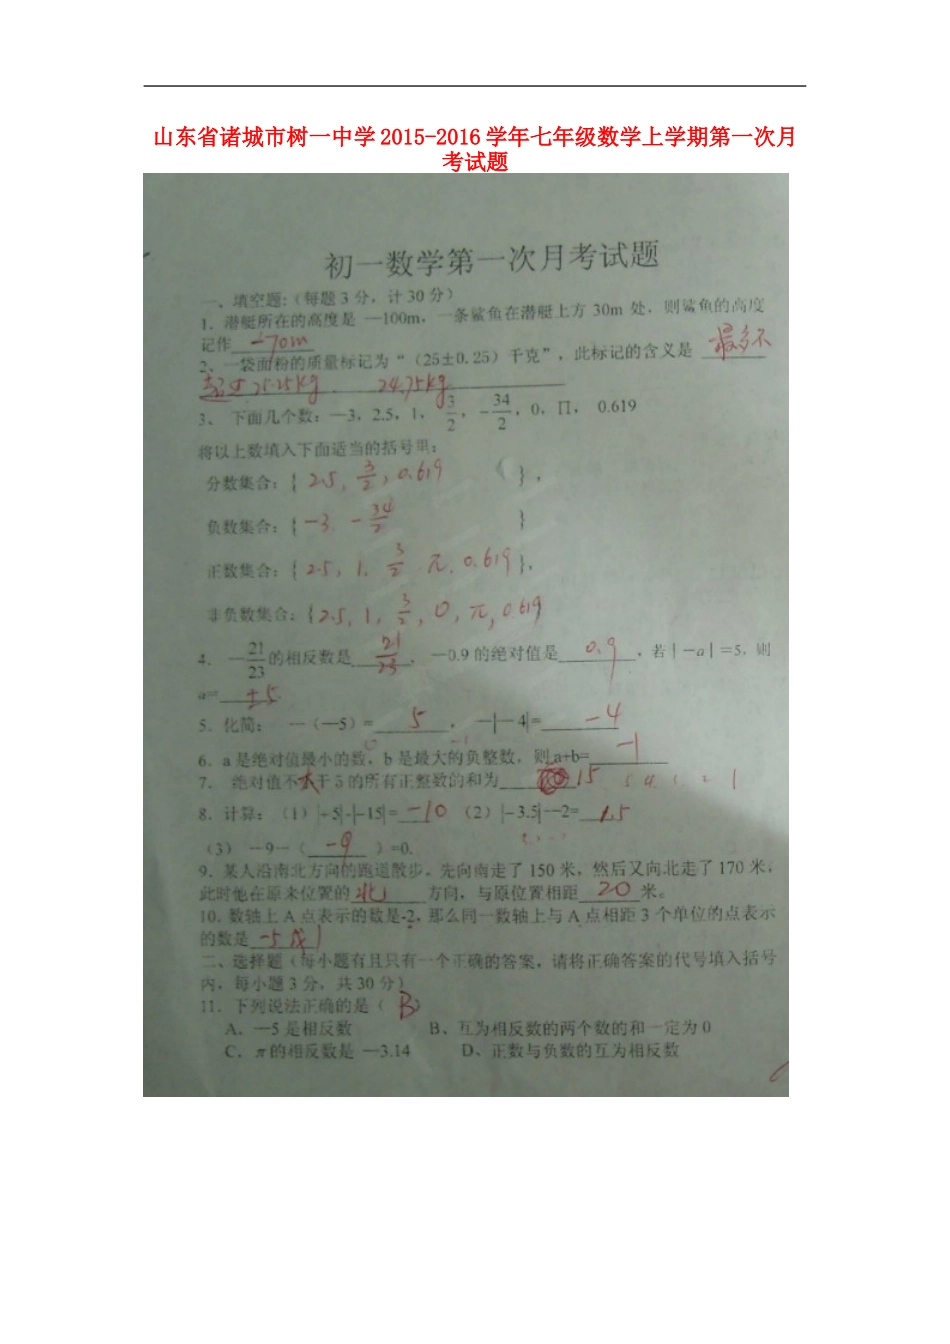 山东省诸城市树一中学2015-2016学年七年级数学上学期第一次月
考试题
初一数学第一次月考试题
一、填空题:(每题3分，计30分)
1. 潜艇所在的高度是 —100m，一条鲨鱼在潜艇上方 30m 处，则鲨鱼的高度
记作 -70m
2、一袋面粉的质量标记为“(25±0.25)千克”，此标记的含义是 最多不
超过25.25kg 24.75kg
3、 下面几个数：—3，2.5，1，3/2，-34/2，0，∏， 0.619
将以上数填入下面适当的括号里：
分数集合：{ 2.5, 3/2, 0.619 }，
负数集合：{ -3. -34/2 }
正数集合：{ 2.5, 1. 3/2 π. 0.619 }，
非负数集合：{ 2.5, 1, 3/2, 0, π, 0.619
4. —21/23的相反数是 21/23 ， —0.9的绝对值是 0.9 ，若|－a|＝5，则
a= ±5
5．化简： —（—5）= 5 ， —|—4|= -4
0 -1
6．a是绝对值最小的数，b是最大的负整数，则a+b= -1
7． 绝对值不大于5的所有正整数的和为 15 5 4 3 2 1
8．计算：（1）|+5|-|-15|= -10 （2）|-3.5|-—2= 1.5
（3） －9－（ -9 ）=0.
9．某人沿南北方向的跑道散步，先向南走了150米，然后又向北走了170米，
此时他在原来位置的 北 方向，与原位置相距 20 米。
10．数轴上A点表示的数是-2，那么同一数轴上与A点相距3个单位的点表示
的数是 -5或1
二、选择题（每小题有且只有一个正确的答案，请将正确答案的代号填入括号
内，每小题3分，共30分）
11．下列说法正确的是（ B ）
A．—5是相反数 B、互为相反数的两个数的和一定为0
C．π的相反数是 —3.14 D、正数与负数的互为相反数